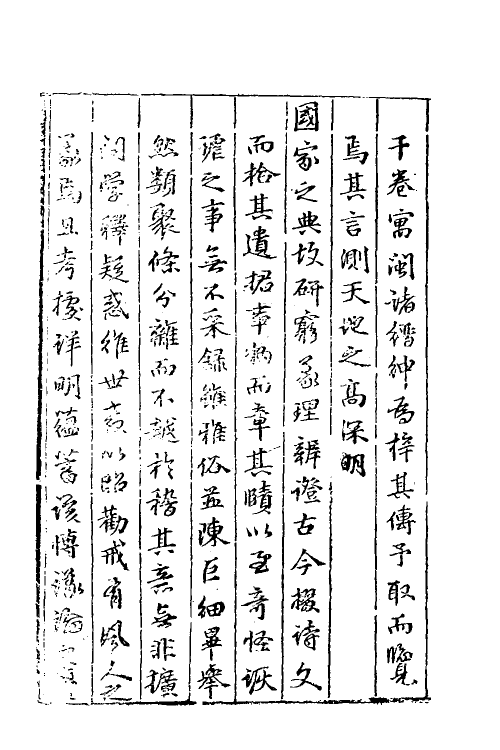 千卷寓閩諸縉紳為梓其傳予取而覽
焉其言測天地之高深明
國家之典故研窮義理辨證古今掇詩文
而拾其遺捃事物而其賾以至奇怪詼
之事無不采錄雖雅俗並陳巨細畢舉
然類聚條分雜而不越於稽其意無非擴
問學釋疑惑維世教以昭勸戒有風人之
義焉且考據詳明蘊蓄該博議論